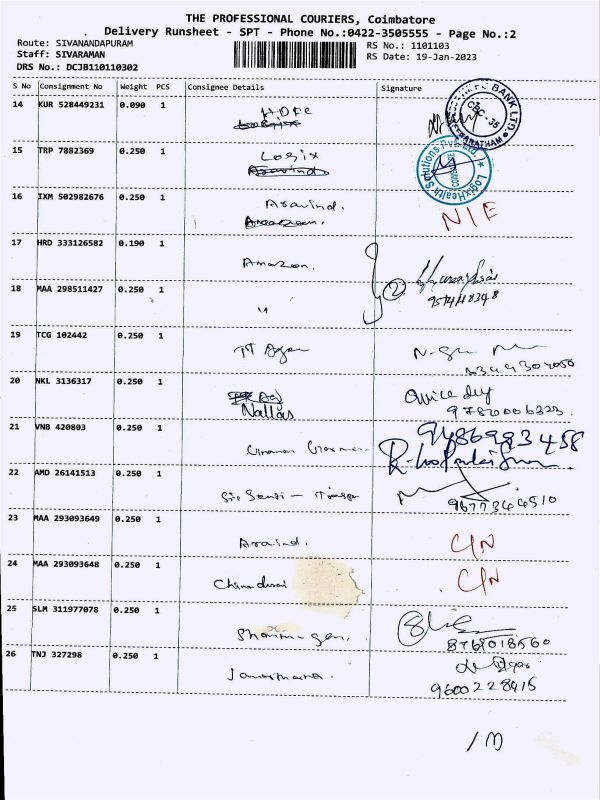 THE PROFESSIONAL COURIERS, Coimbatore
Delivery Runsheet - SPT - Phone No.:0422-3505555 - Page No.:2
Route: SIVANANDAPURAM
Staff: SIVARAMAN
DRS No.: DCJB110110302
RS No.: 1101103
RS Date: 19-Jan-2023
S No Consignment No Weight PCS Consignee Details Signature
14 KUR 528449231 0.090 1 HDFC
15 TRP 7882369 0.250 1 Logix
LogixHealth Solutions Pvt Ltd
COIMBATORE
16 IXM 502982676 0.250 1 Aravind. NIE
17 HRD 333126582 0.190 1 Amazon.
18 MAA 298511427 0.250 1 " 2
19 TCG 102442 0.250 1
20 NKL 3136317 0.250 1 Nallas
21 VNB 420803 0.250 1 9486983458
22 AMD 26141513 0.250 1 9677344510
23 MAA 293093649 0.250 1 Aravind. C/N
24 MAA 293093648 0.250 1 Chinnadurai C/N
25 SLM 311977078 0.250 1 8767018560
26 TNJ 327298 0.250 1 9600228415